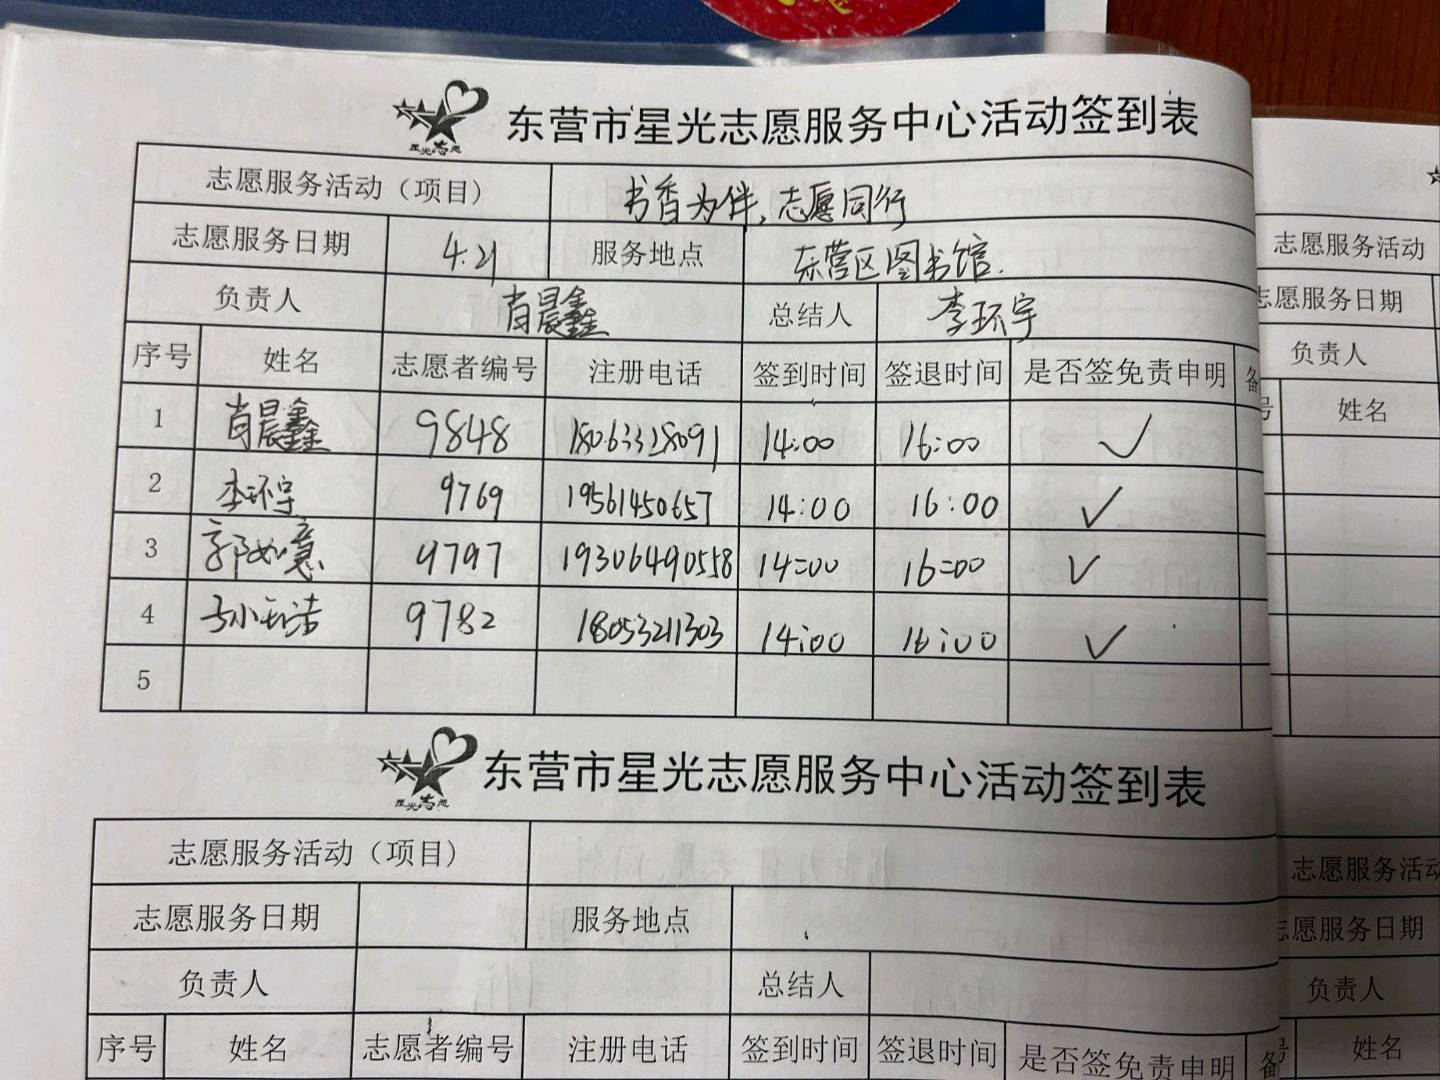 星光志愿
东营市星光志愿服务中心活动签到表
志愿服务活动（项目） 书香为伴、志愿同行
志愿服务日期 4.21 服务地点 东营区图书馆.
负责人 肖晨鑫 总结人 李环宇
序号 姓名 志愿者编号 注册电话 签到时间 签退时间 是否签免责申明 备
1 肖晨鑫 9848 18063328091 14:00 16:00 ✓
2 李环宇 9769 19561450657 14:00 16:00 ✓
3 郭如意 9797 19306490558 14:00 16:00 ✓
4 9782 18053211303 14:00 16:00 ✓
5
星光志愿
东营市星光志愿服务中心活动签到表
志愿服务活动（项目）
志愿服务日期 服务地点
负责人 总结人
序号 姓名 志愿者编号 注册电话 签到时间 签退时间 是否签免责申明 备
志愿服务活动
志愿服务日期
负责人
号 姓名
志愿服务活动
志愿服务日期
负责人
号 姓名